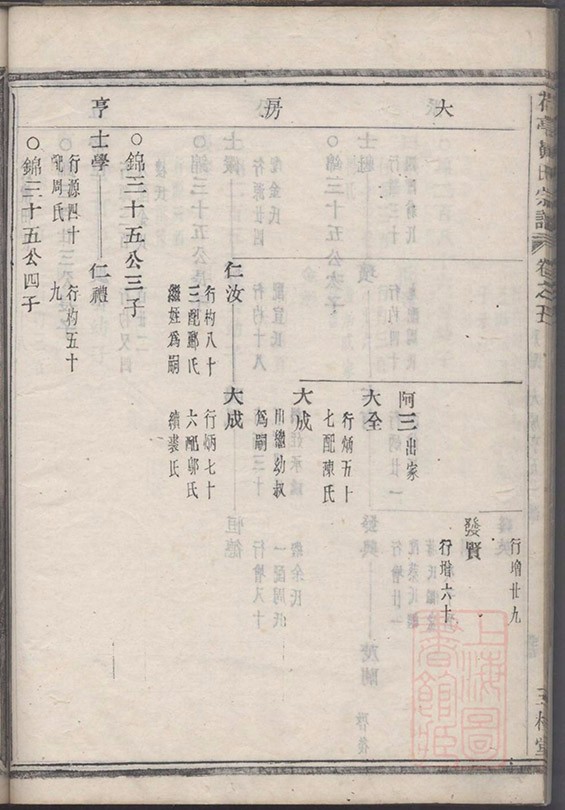 宗譜 卷之五
大 房 亨
行增廿九
發賢
行增六十
阿三出家
大全
行炳五十
七配陳氏
大成
出繼幼叔
爲嗣
仁汝 大成
行杓八十 行炳七十
三配鄭氏 六配鄔氏
繼姪爲嗣 續裘氏
○錦三十五公三子
士學 仁禮
行源四十 行杓五十
配周氏 九
○錦三十五公四子
上海圖書館藏